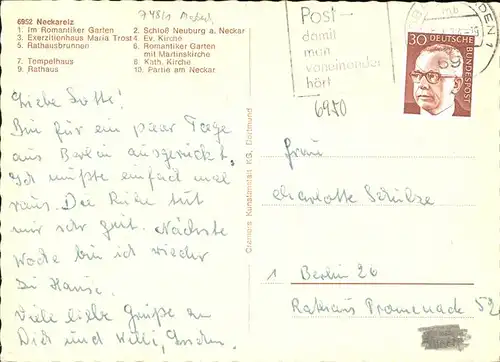 6952 Neckarelz
1. Im Romantiker Garten
2. Schloß Neuburg a. Neckar
3. Exerzitienhaus Maria Trost
4. Ev. Kirche
5. Rathausbrunnen
6. Romantiker Garten
mit Martinskirche
7. Tempelhaus
8. Kath. Kirche
9. Rathaus
10. Partie am Neckar
Post-
damit
man
voneinander
hört
30
DEUTSCHE
BUNDESPOST
6950
Liebe Lotte!
Bin für ein paar Tage
aus Berlin ausgerückt,
Ich mußte einfach mal
raus. Die Ruhe tut
mir sehr gut. Nächste
Woche bin ich wieder
zu Hause.
Viele liebe Grüße an
Dich und Willi,
Cramers Kunstanstalt KG, Dortmund
Frau
Charlotte Schulze
1 Berlin 26
Rathaus Promenade